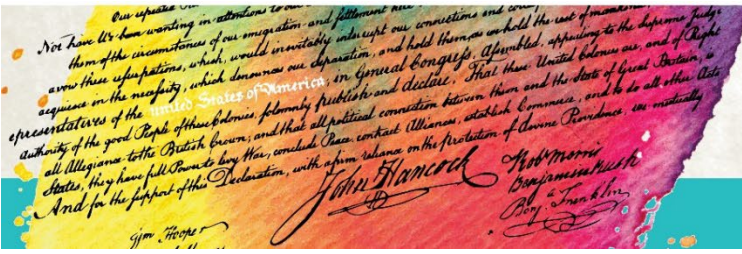 Our repeated
Not have We been wanting in attentions to our
them of the circumstances of our emigration and settlement
avow these usurpations, which, would inevitably interrupt our connections and
acquiesce in the necessity, which denounces our Separation, and hold them, as we hold the rest of mankind
epresentatives of the united States of America, in General Congress, Assembled, appealing to the Supreme Judge
authority of the good People of these Colonies, solemnly publish and declare, That these United Colonies are, and of Right
all Allegiance to the British Crown, and that all political connection between them and the State of Great Britain, is
States, they have full Power to levy War, conclude Peace, contract Alliances, establish Commerce, and to do all other Acts
And for the support of this Declaration, with a firm reliance on the protection of divine Providence, we mutually
John Hancock
Rob Morris
Benjamin Rush
Benj. a Franklin
Wm Hooper